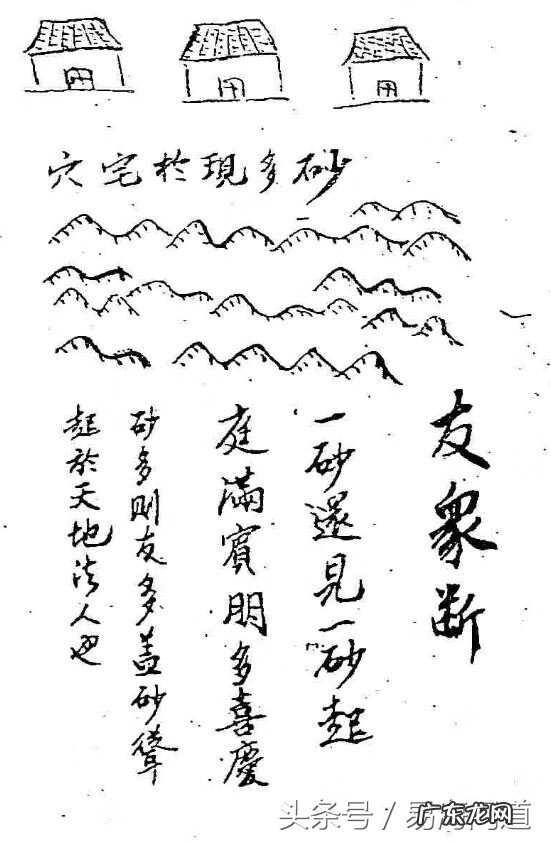 砂多現於宅穴
友衆斷
一砂還見一砂起
庭滿賓朋多喜慶
砂多則友多蓋砂聳
起於天地法人也
头条号 /
广东龙网